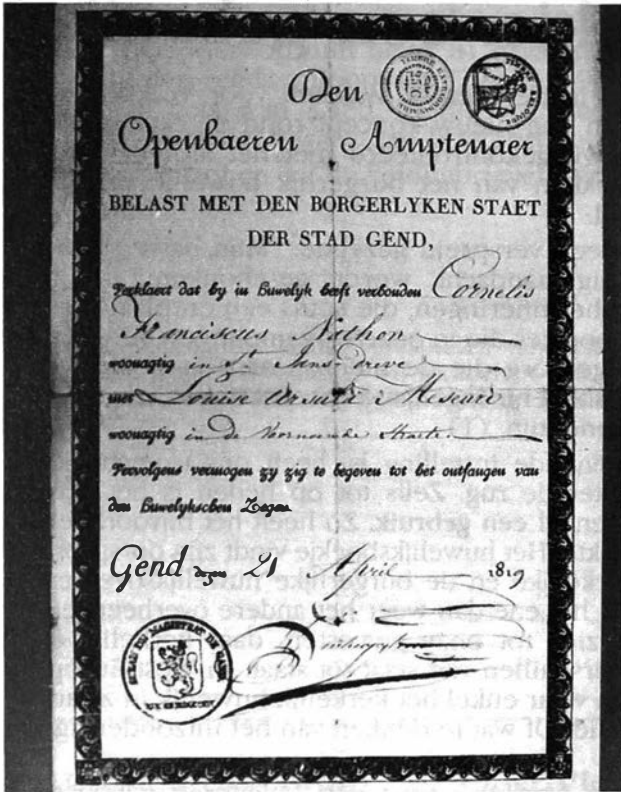 Den
Openbaeren Amptenaer
BELAST MET DEN BORGERLYKEN STAET
DER STAD GEND,
Verklaert dat hy in Huwelyk heeft verbonden Cornelis
Franciscus Nathon
woonagtig in St. Jans-dreve
met Louise Ursule
woonagtig in de Voornoemde Straete
Vervolgens vermogen zy zig te begeven tot het ontfangen van
den Huwelykschen Zegen
Gend dezen 21 April 1819